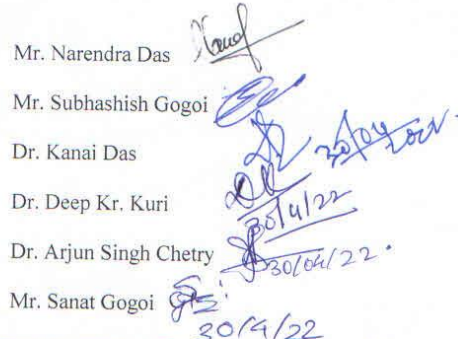 Mr. Narendra Das
Mr. Subhashish Gogoi
Dr. Kanai Das 30/04
Dr. Deep Kr. Kuri
30/4/22
Dr. Arjun Singh Chetry 30/04/22.
Mr. Sanat Gogoi
30/4/22